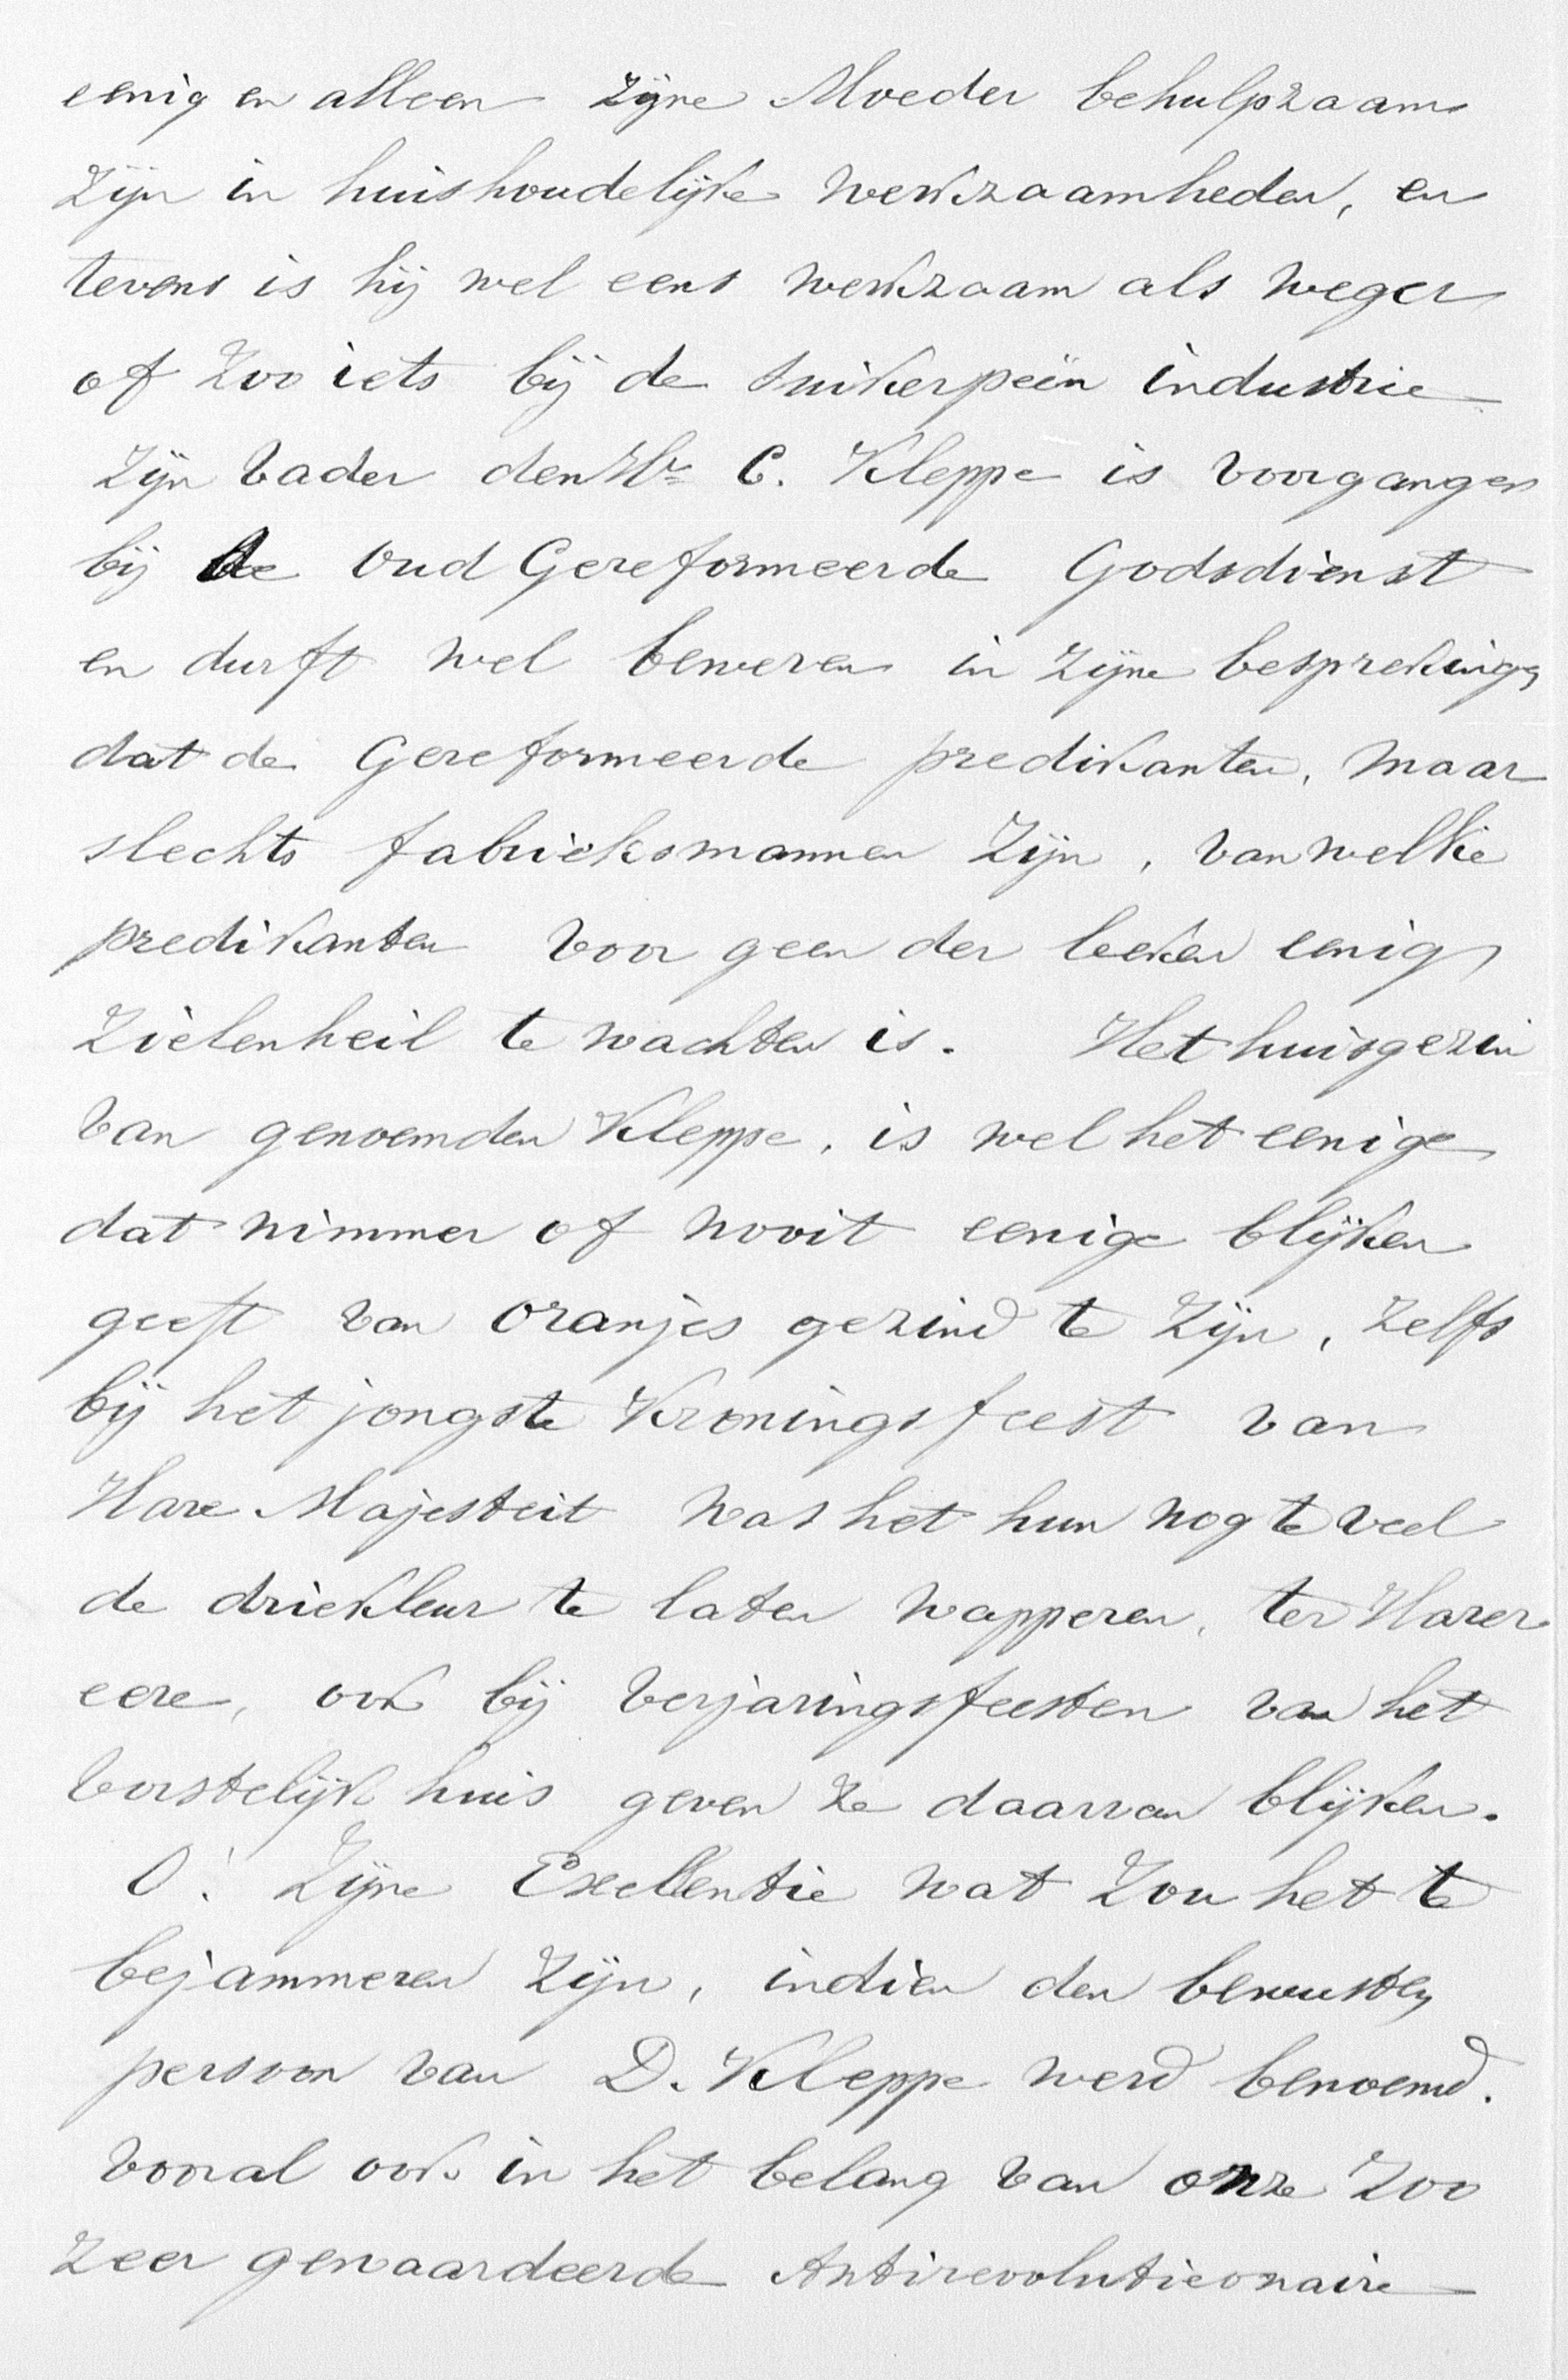 eenig en alleen zijne Moeder behulpzaam
zijn in huishoudelijke werkzaamheden, en
tevens is hij wel eens werkzaam als weger
of zoo iets bij de suikerpeën industrie
zijn vader den Hr C. Kleppe is voorganger
bij de Oud Gereformeerde Godsdienst
en durft wel beweren in zijne besprekings
dat de Gereformeerde predikanten, maar
slechts fabrieksmannen zijn, van welkie
predikanten voor geen der leeken eenig
zielenheil te wachten is. Het huisgezin
van genoemden Kleppe, is wel het eenige
dat nimmer of nooit eenige blijken
geeft van oranjes gezind te zijn, zelfs
bij het jongste Kroningsfeest van
Hare Majesteit was het hun nog te veel
de driekleur te laten wapperen, ter Harer
eere, ook bij verjaringsfeesten van het
vorstelijk huis geven ze daarvan blijken.
O! Zijne Exellentie wat zou het te
bejammeren zijn, indien den bewusten
persoon van D. Kleppe werd benoemd.
vooral ook in het belang van onze zoo
zeer gewaardeerde Antirevolutieonaire